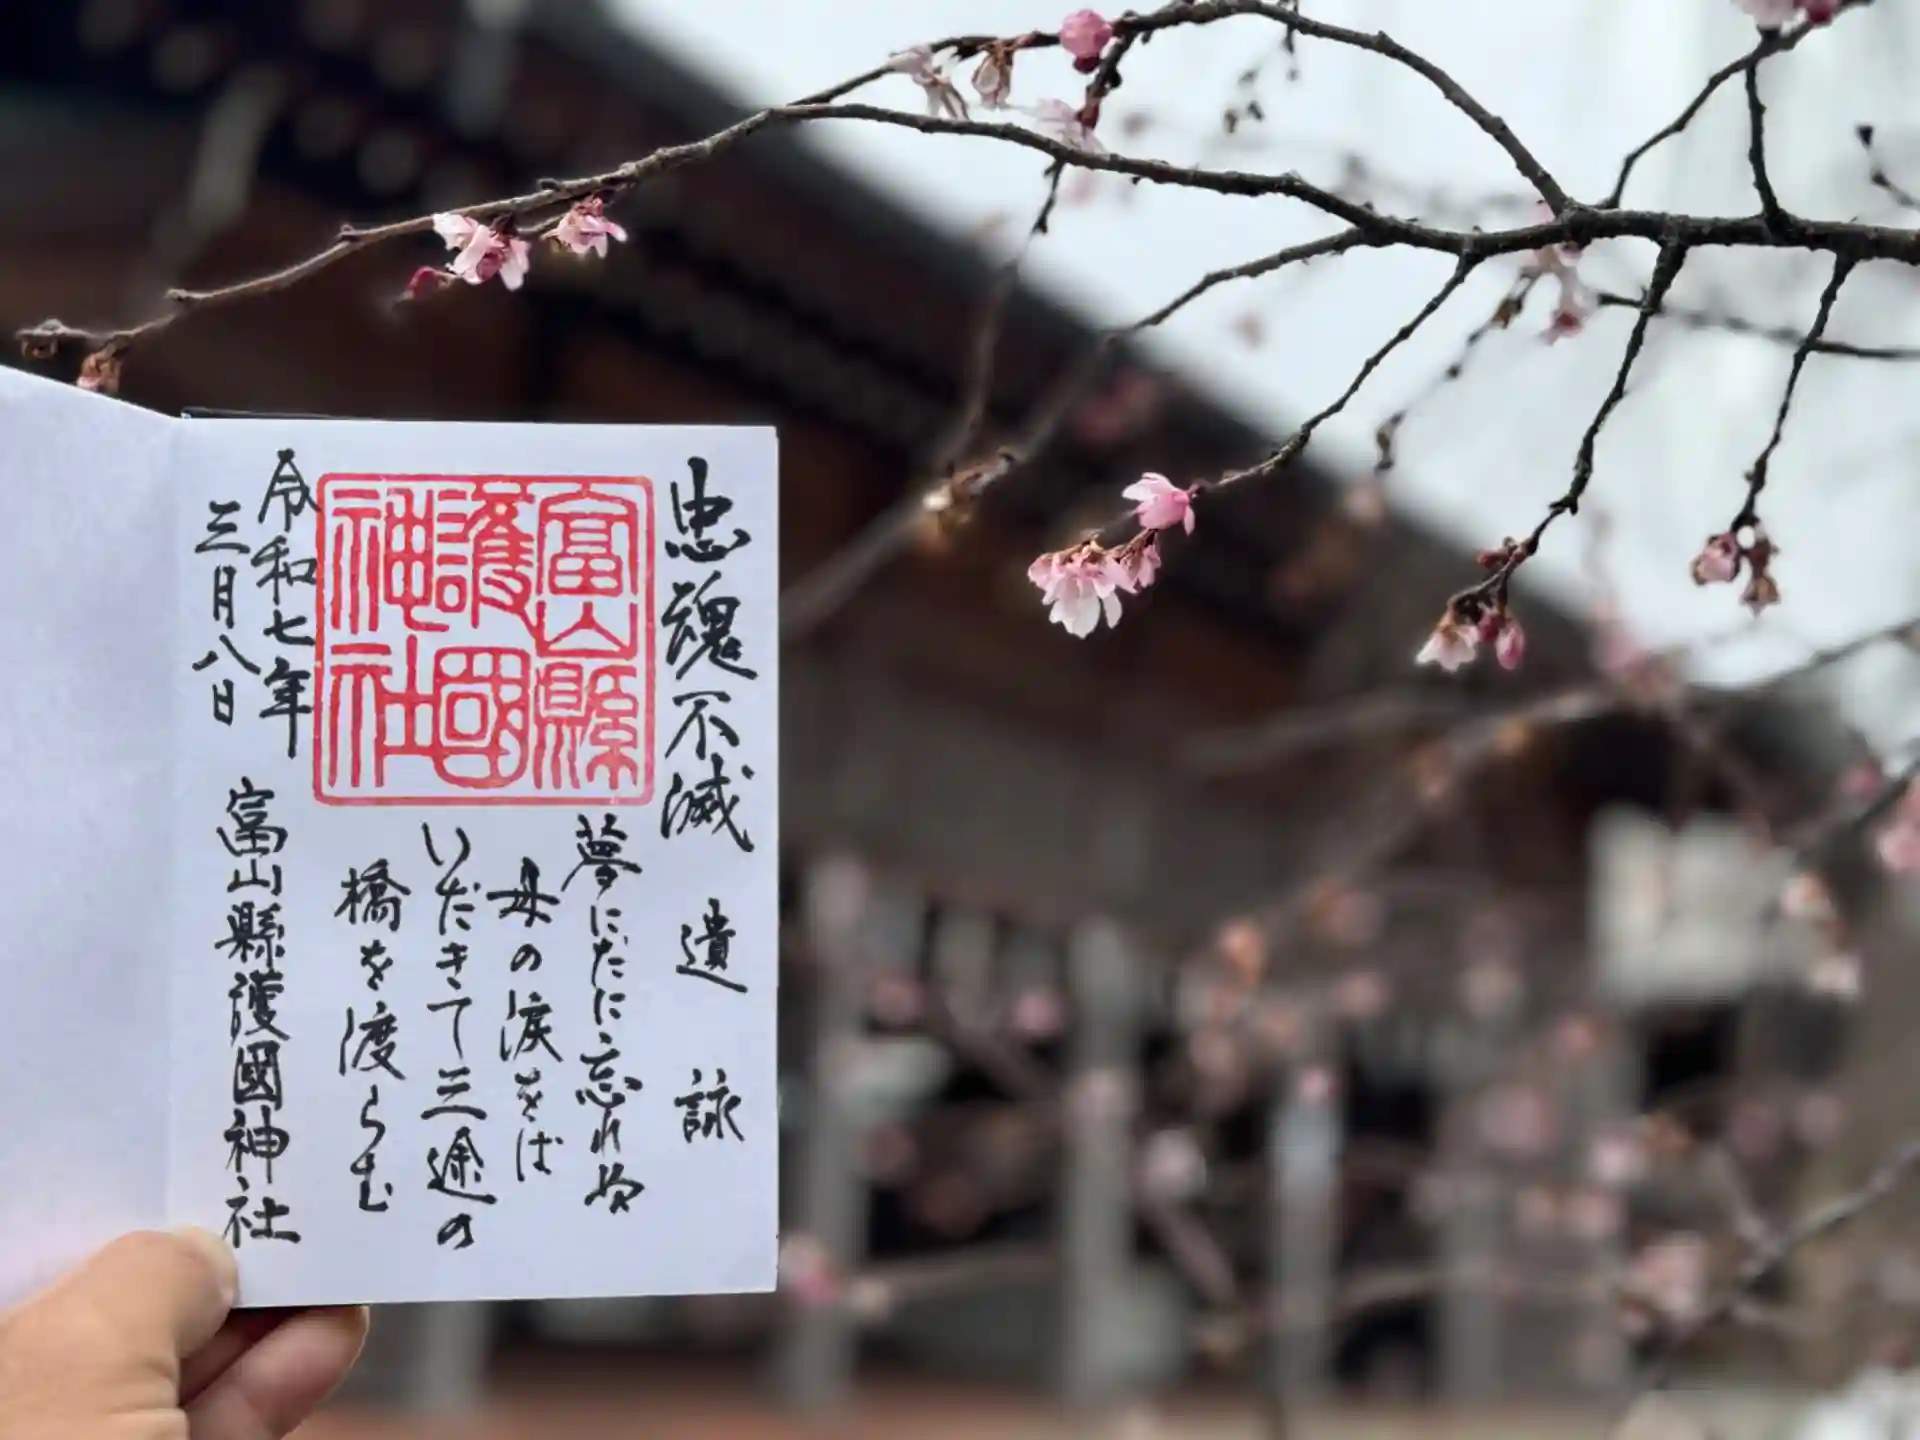 忠魂不滅 遺詠
富山縣
護國
神社
夢にだに忘れぬ
母の涙をば
いだきて三途の
橋を渡らむ
令和七年
三月八日
富山縣護國神社